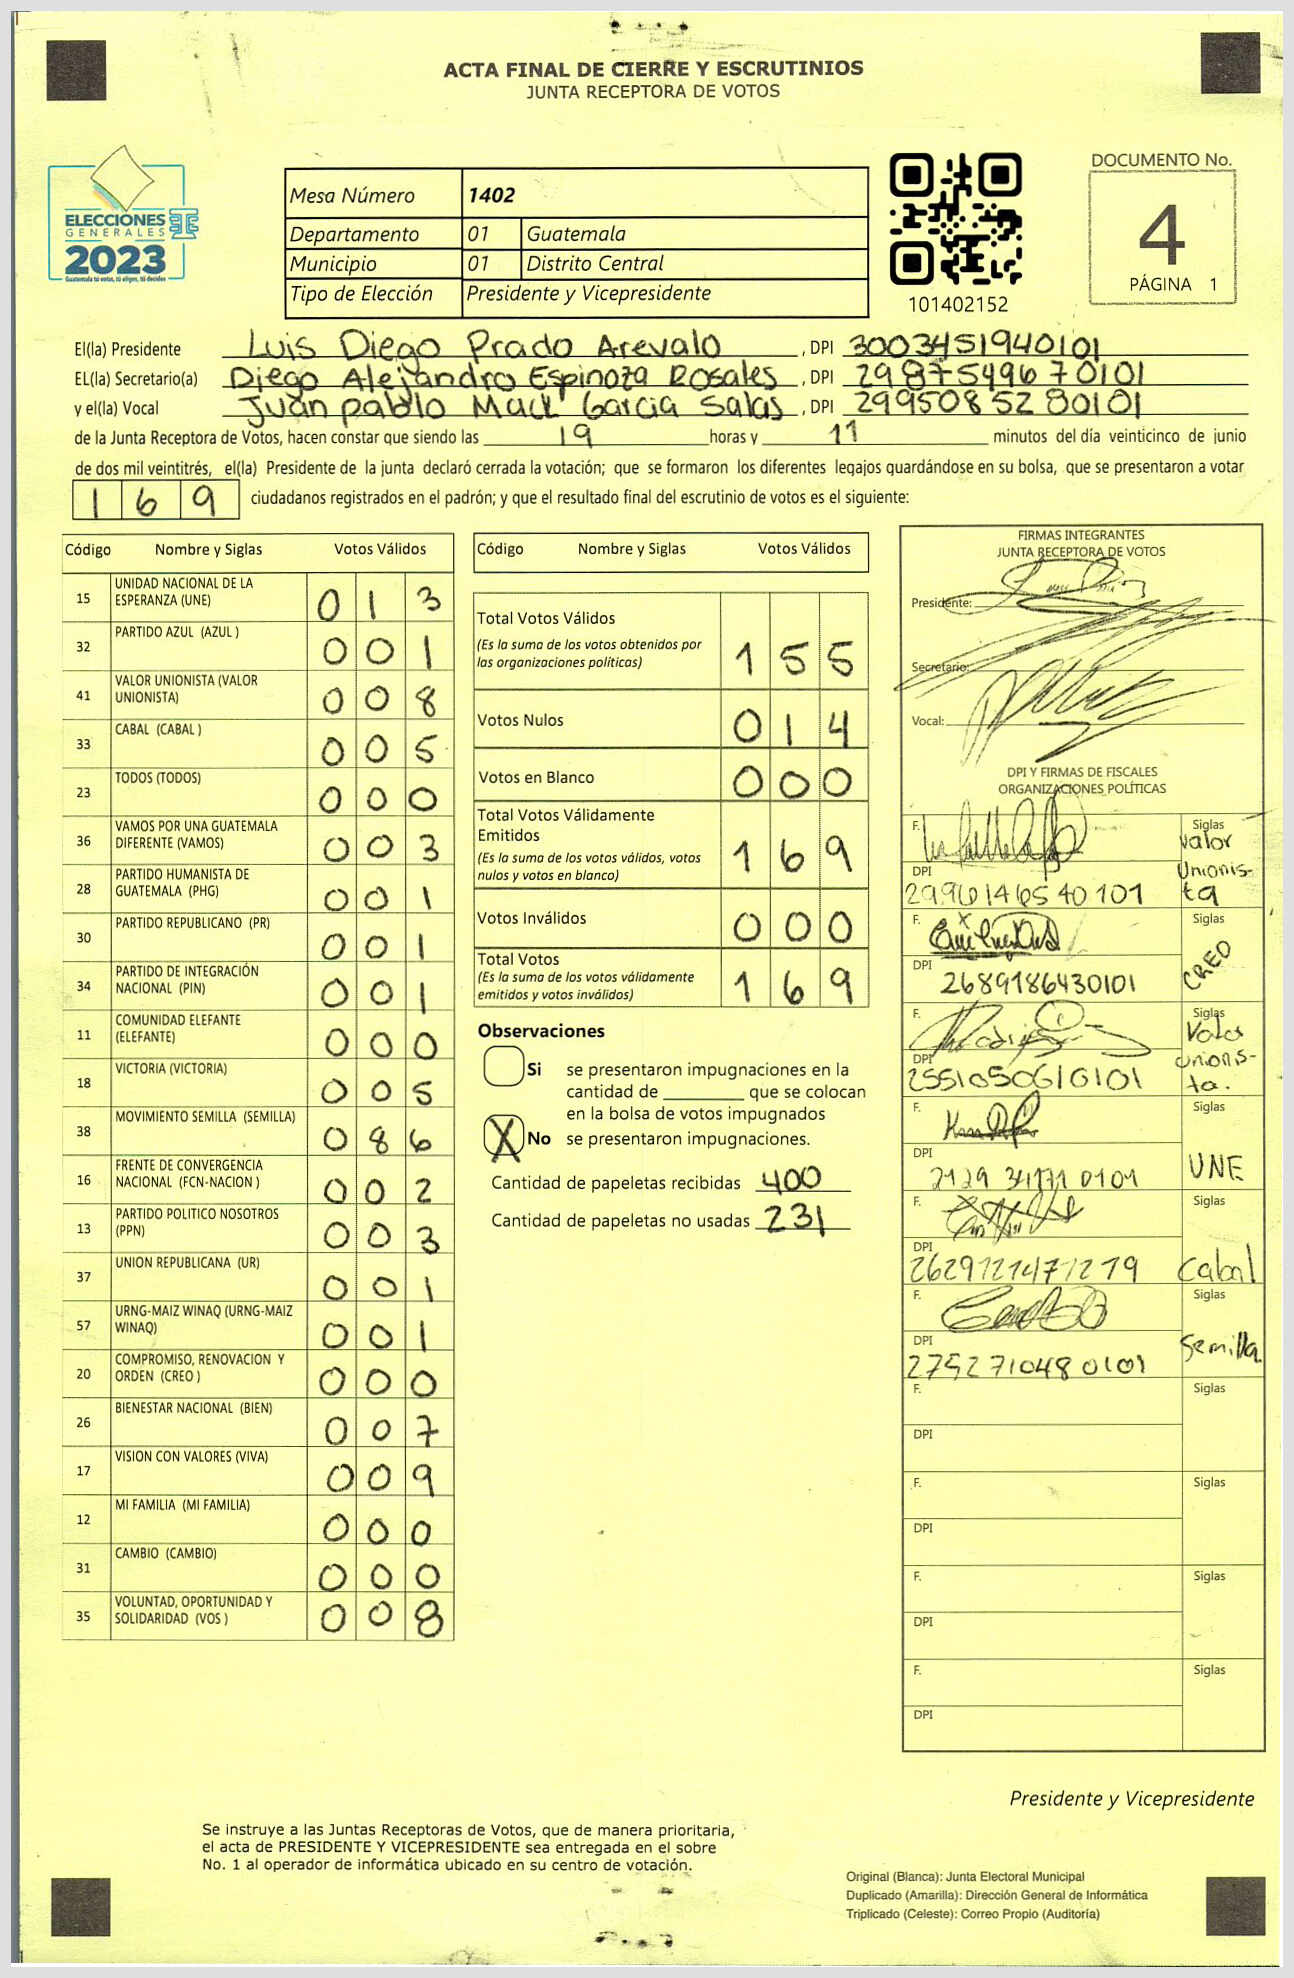 ACTA FINAL DE CIERRE Y ESCRUTINIOS
JUNTA RECEPTORA DE VOTOS
ELECCIONES
GENERALES
2023
Guatemala tú votas, tú eliges, tú decides
Mesa Número 1402
Departamento 01 Guatemala
Municipio 01 Distrito Central
Tipo de Elección Presidente y Vicepresidente
101402152
DOCUMENTO No.
4
PÁGINA 1
El(la) Presidente Luis Diego Prado Arevalo, DPI 3003451940101
EL(la) Secretario(a) Diego Alejandro Espinoza Rosales, DPI 2987549670101
y el(la) Vocal Juan pablo Garcia Salas, DPI 2995085280101
de la Junta Receptora de Votos, hacen constar que siendo las 19 horas y 11 minutos del día veinticinco de junio
de dos mil veintitrés, el(la) Presidente de la junta declaró cerrada la votación; que se formaron los diferentes legajos guardándose en su bolsa, que se presentaron a votar
169 ciudadanos registrados en el padrón; y que el resultado final del escrutinio de votos es el siguiente:
Código Nombre y Siglas Votos Válidos
15 UNIDAD NACIONAL DE LA
ESPERANZA (UNE) 013
32 PARTIDO AZUL (AZUL ) 001
41 VALOR UNIONISTA (VALOR
UNIONISTA) 008
33 CABAL (CABAL ) 005
23 TODOS (TODOS) 000
36 VAMOS POR UNA GUATEMALA
DIFERENTE (VAMOS) 003
28 PARTIDO HUMANISTA DE
GUATEMALA (PHG) 001
30 PARTIDO REPUBLICANO (PR) 001
34 PARTIDO DE INTEGRACIÓN
NACIONAL (PIN) 001
11 COMUNIDAD ELEFANTE
(ELEFANTE) 000
18 VICTORIA (VICTORIA) 005
38 MOVIMIENTO SEMILLA (SEMILLA) 086
16 FRENTE DE CONVERGENCIA
NACIONAL (FCN-NACION ) 002
13 PARTIDO POLITICO NOSOTROS
(PPN) 003
37 UNION REPUBLICANA (UR) 001
57 URNG-MAIZ WINAQ (URNG-MAIZ
WINAQ) 001
20 COMPROMISO, RENOVACION Y
ORDEN (CREO ) 000
26 BIENESTAR NACIONAL (BIEN) 007
17 VISION CON VALORES (VIVA) 009
12 MI FAMILIA (MI FAMILIA) 000
31 CAMBIO (CAMBIO) 000
35 VOLUNTAD, OPORTUNIDAD Y
SOLIDARIDAD (VOS ) 008
Código Nombre y Siglas Votos Válidos
Total Votos Válidos
(Es la suma de los votos obtenidos por
las organizaciones políticas) 155
Votos Nulos 014
Votos en Blanco 000
Total Votos Válidamente
Emitidos
(Es la suma de los votos válidos, votos
nulos y votos en blanco) 169
Votos Inválidos 000
Total Votos
(Es la suma de los votos válidamente
emitidos y votos inválidos) 169
Observaciones
Si se presentaron impugnaciones en la
cantidad de ________ que se colocan
en la bolsa de votos impugnados
X No se presentaron impugnaciones.
Cantidad de papeletas recibidas 400
Cantidad de papeletas no usadas 231
FIRMAS INTEGRANTES
JUNTA RECEPTORA DE VOTOS
Presidente:
Secretario:
Vocal:
DPI Y FIRMAS DE FISCALES
ORGANIZACIONES POLÍTICAS
F. Siglas
Valor
Unionis-
ta
DPI
2996146540101
F. Siglas
CREO
DPI
2689186430101
F. Siglas
Valor
Unionis-
ta.
DPI
2551050610101
F. Siglas
UNE
DPI
F. Siglas
Cabal
DPI
F. Siglas
Semilla
DPI
2752710480101
F. Siglas
DPI
F. Siglas
DPI
F. Siglas
DPI
F. Siglas
DPI
Presidente y Vicepresidente
Se instruye a las Juntas Receptoras de Votos, que de manera prioritaria,
el acta de PRESIDENTE Y VICEPRESIDENTE sea entregada en el sobre
No. 1 al operador de informática ubicado en su centro de votación.
Original (Blanca): Junta Electoral Municipal
Duplicado (Amarilla): Dirección General de Informática
Triplicado (Celeste): Correo Propio (Auditoría)